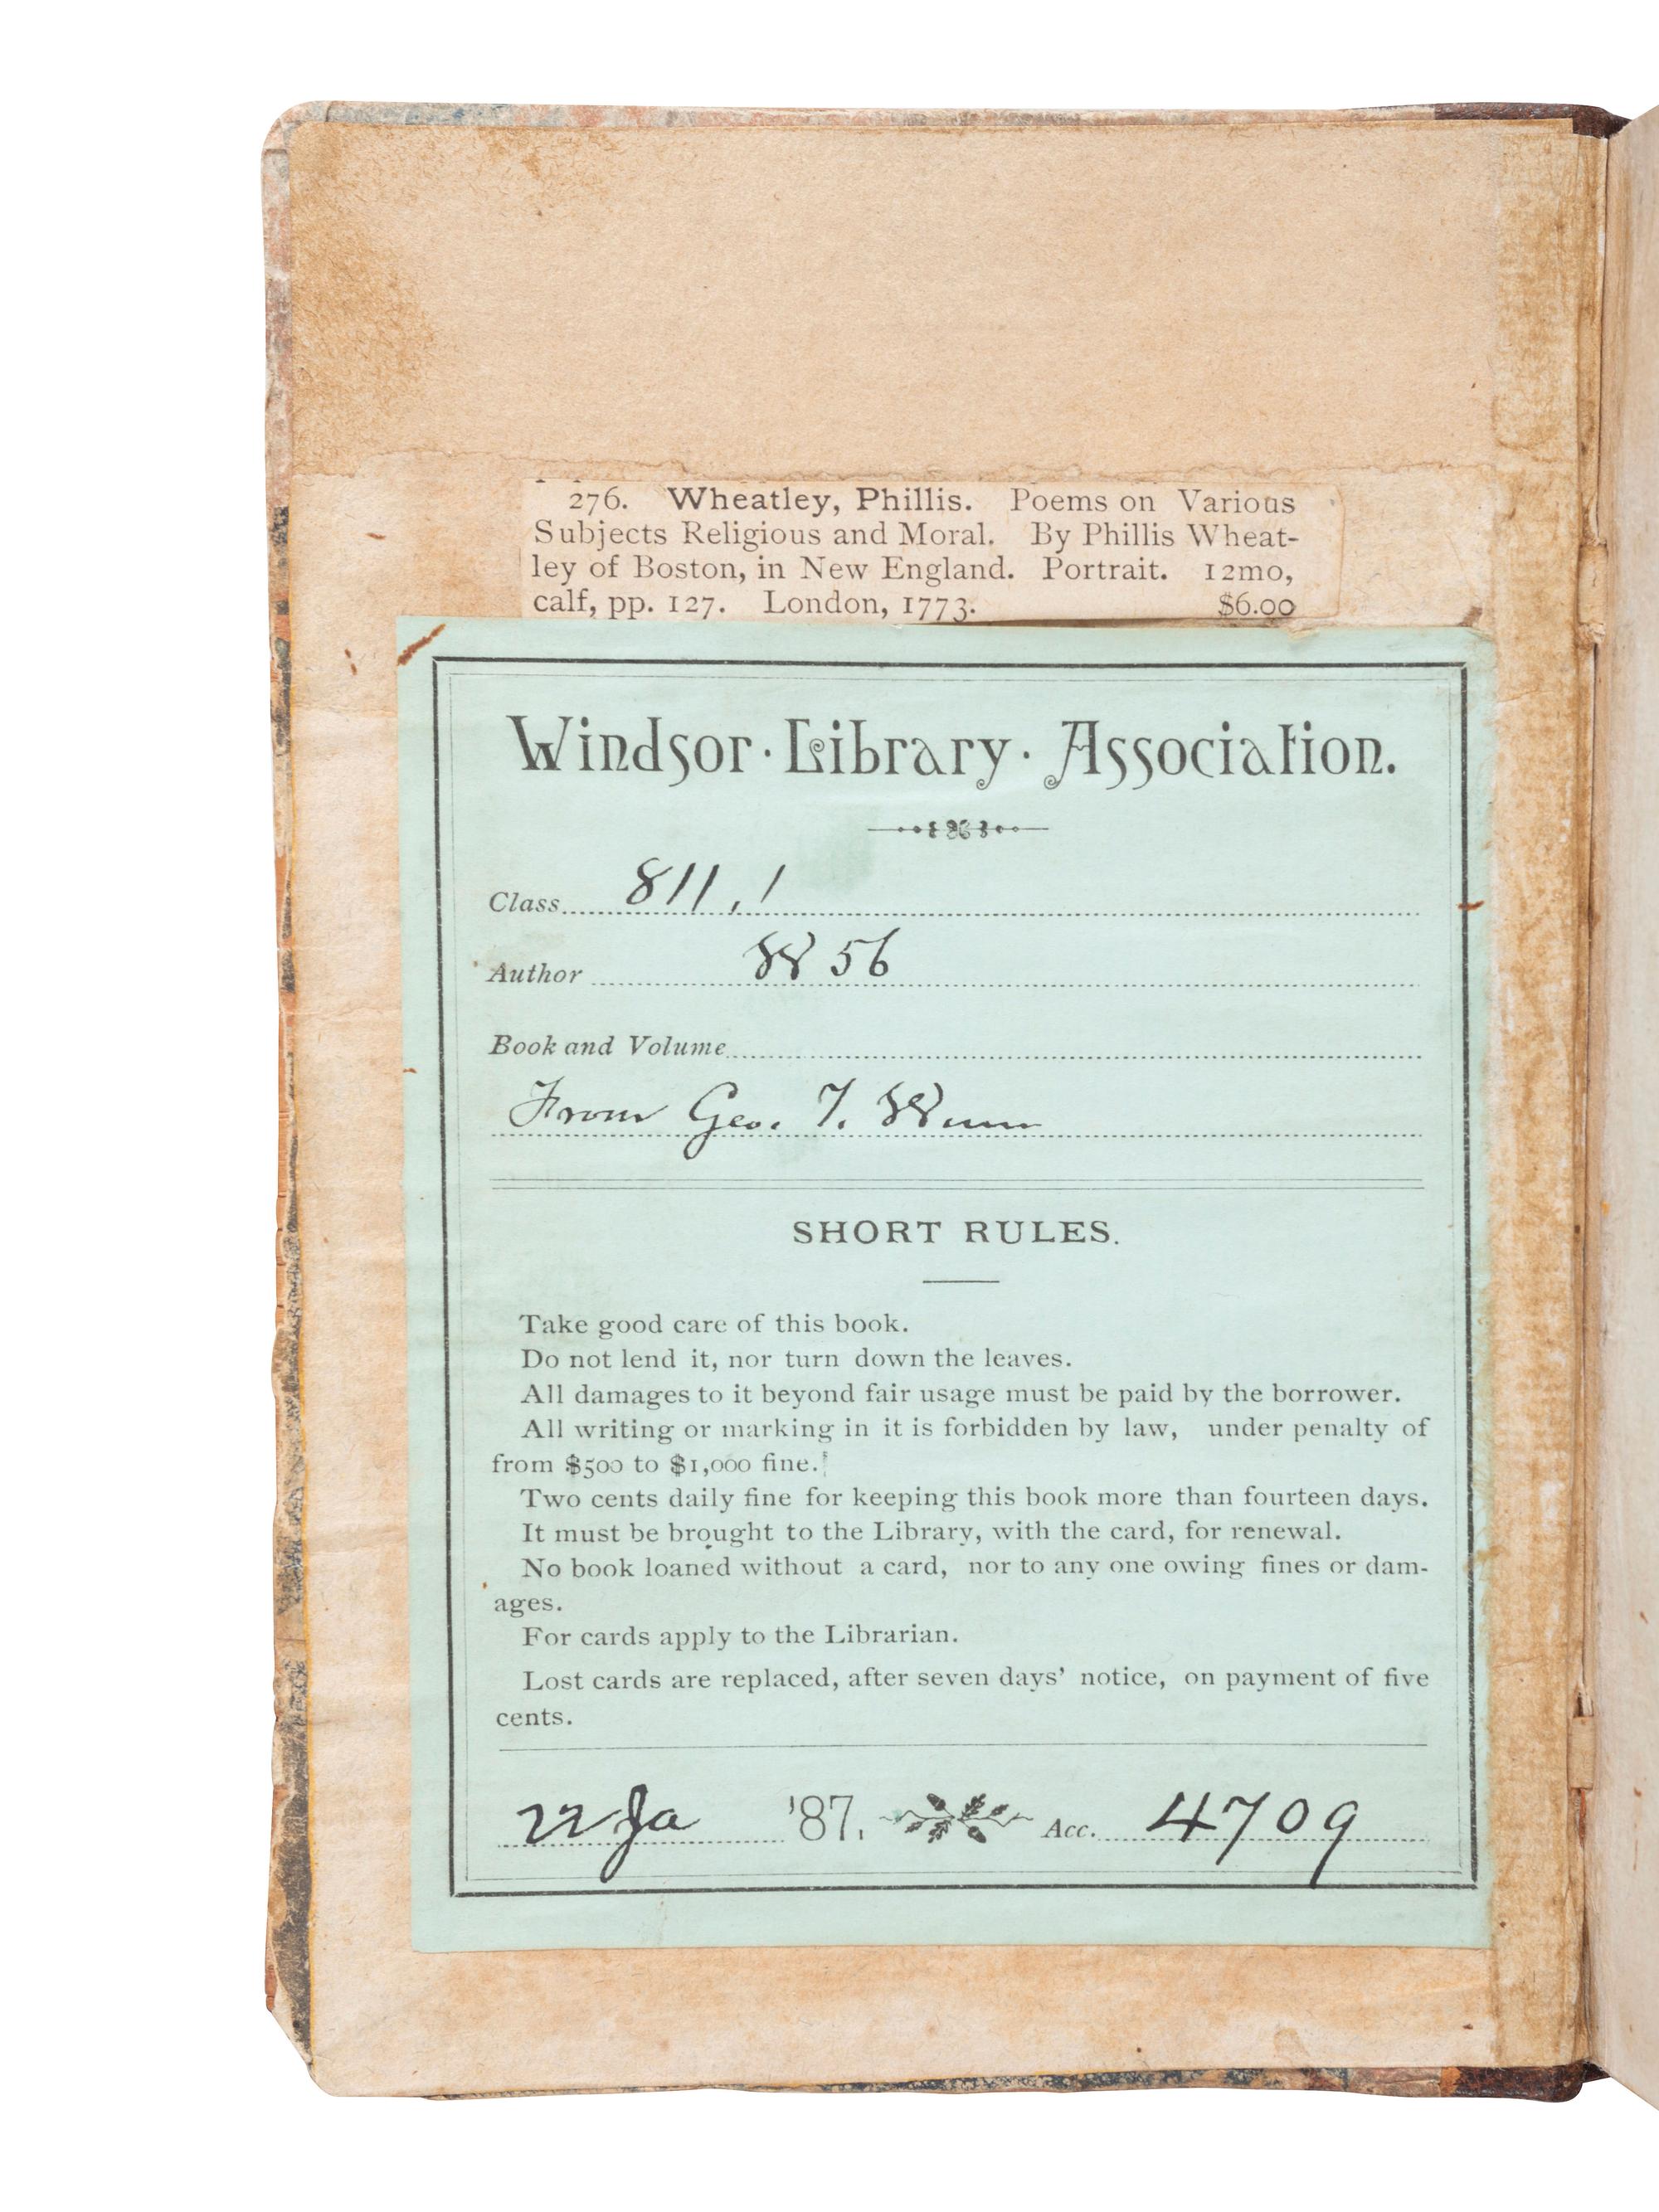 276. Wheatley, Phillis. Poems on Various
Subjects Religious and Moral. By Phillis Wheat-
ley of Boston, in New England. Portrait. 12mo,
calf, pp. 127. London, 1773. $6.00
Windsor · Library · Association.
Class 811.1
Author W56
Book and Volume
From Geo. T. Winn
SHORT RULES.
Take good care of this book.
Do not lend it, nor turn down the leaves.
All damages to it beyond fair usage must be paid by the borrower.
All writing or marking in it is forbidden by law, under penalty of
from $500 to $1,000 fine.
Two cents daily fine for keeping this book more than fourteen days.
It must be brought to the Library, with the card, for renewal.
No book loaned without a card, nor to any one owing fines or dam-
ages.
For cards apply to the Librarian.
Lost cards are replaced, after seven days' notice, on payment of five
cents.
22 Ja '87. Acc. 4709